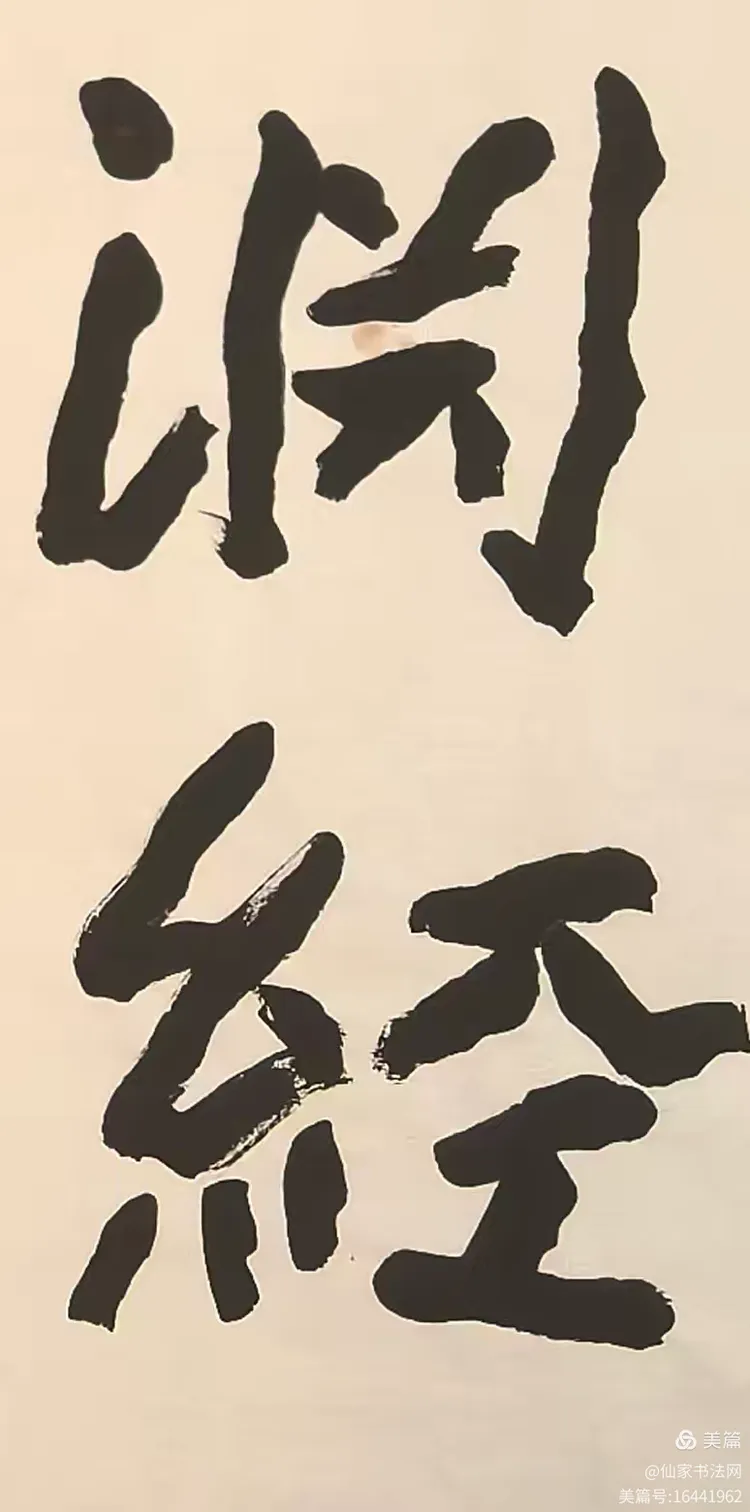 渊經
美篇
@仙家书法网
美篇号:16441962